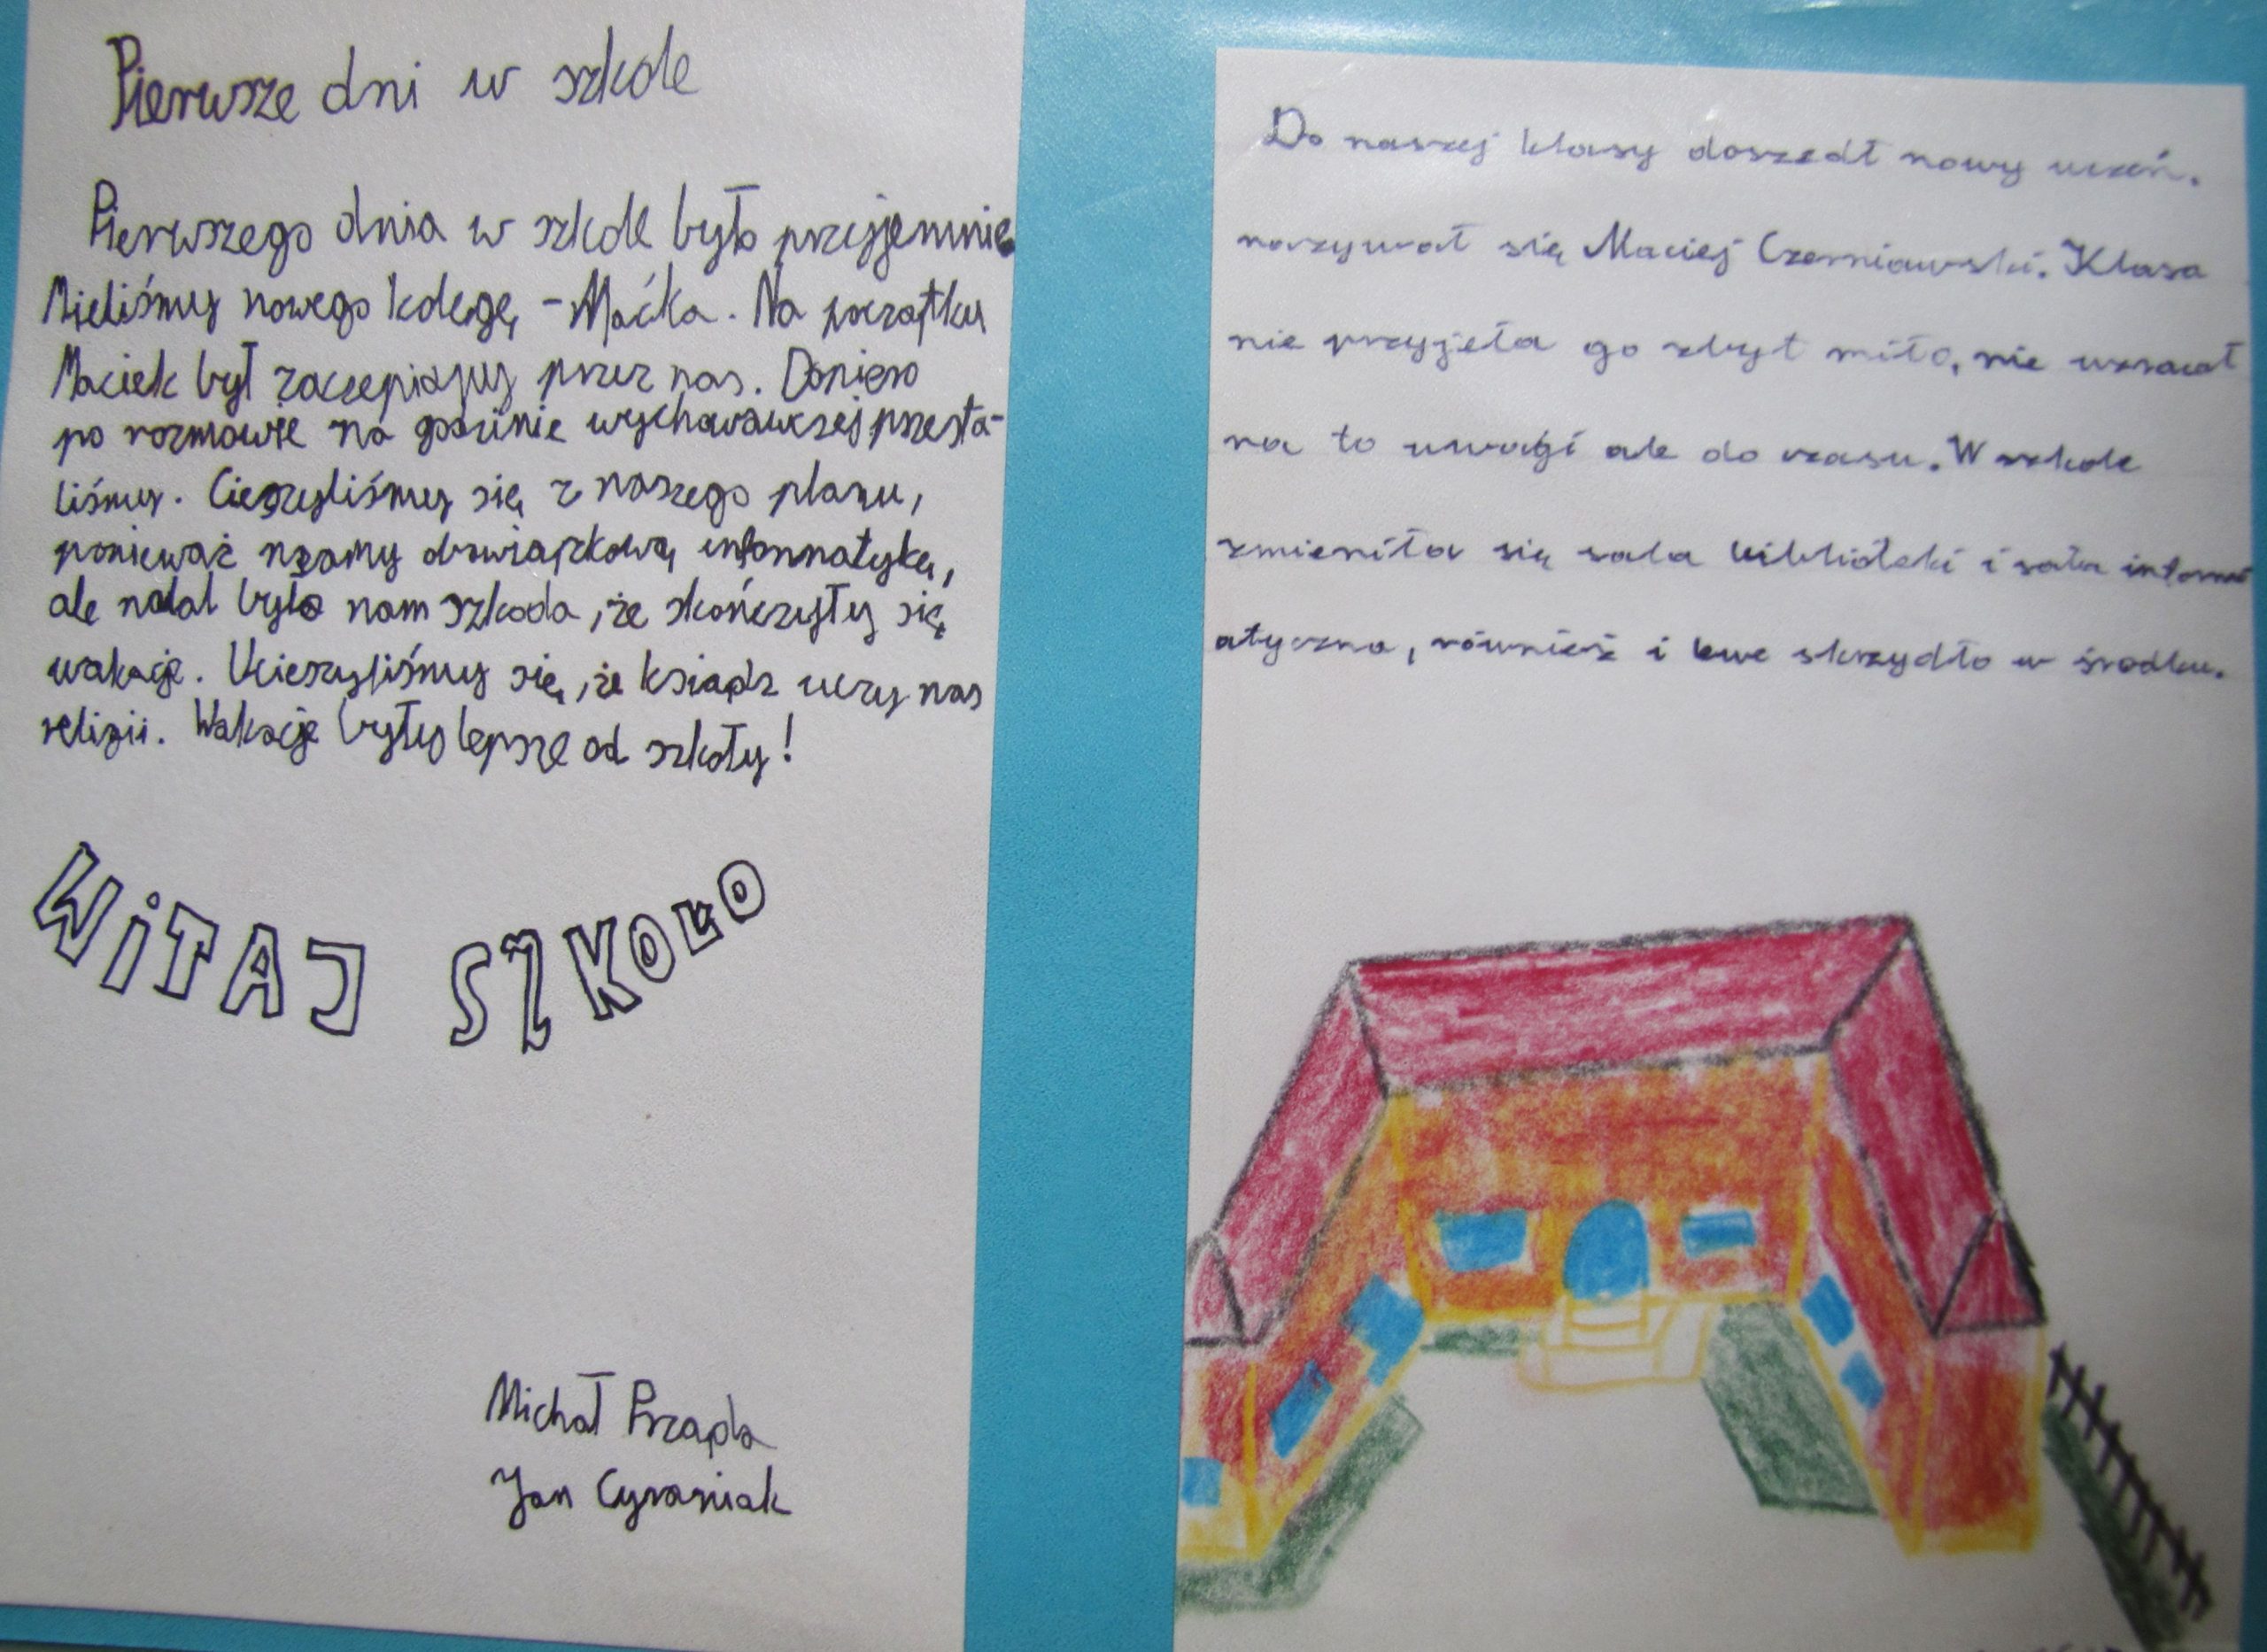 Pierwsze dni w szkole
Pierwszego dnia w szkole było przyjemnie.
Mieliśmy nowego kolegę, - Maćka. Na początku
Maciek był zaczepiajuy przez nas. Dopiero
po rozmowie na godzinie wychowawczej przesta-
liśmy. Cieszyliśmy się z naszego planu,
ponieważ mamy obowiązkową informatykę,
ale nadal było nam szkoda, że skończyły się
wakacje. Ucieszyliśmy się, że ksiądz uczy nas
religii. Wakacje były lepsze od szkoły!
WiTAJ SZKOŁO
Michał Prząda
Jan Cyraniak
Do naszej klasy doszedł nowy uczeń.
nazywał się Maciej Czerniawski. Klasa
nie przyjeła go zbyt miło, nie wzracał
na to uwagi ale do czasu. W szkole
zmieniła się sala biblioteki i sala inform
atyczna, również i lewe skrzydło w środku.